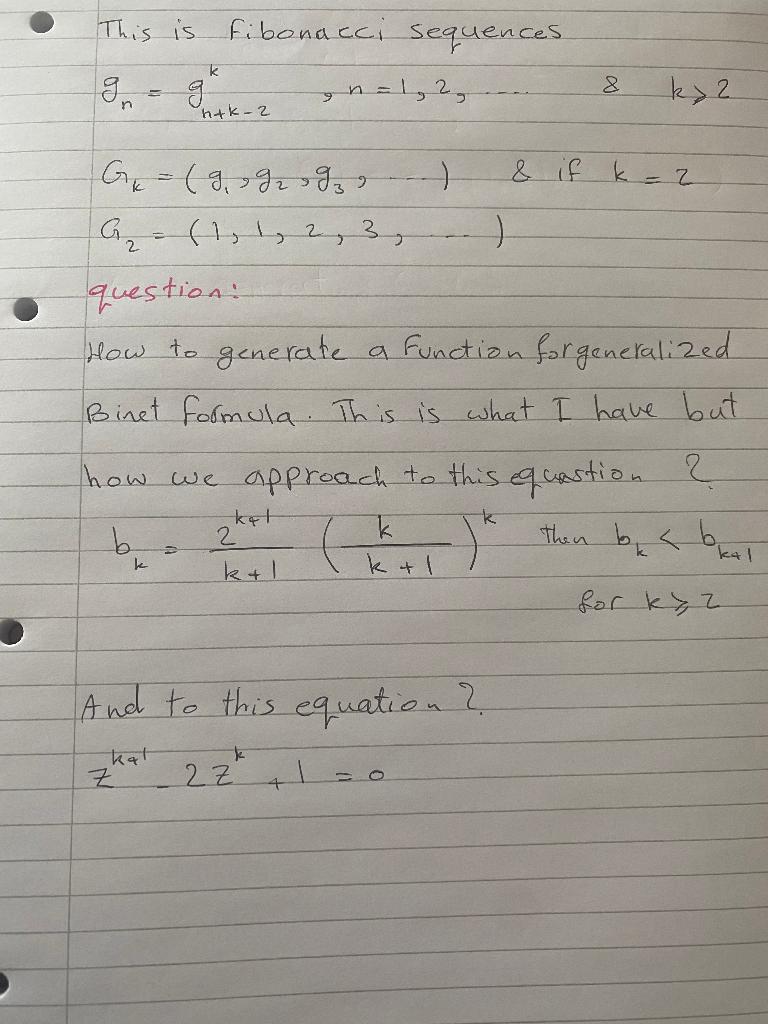 This is Fibonacci sequences
g_n = g^k_{n+k-2} , n = 1, 2, .... & k ⩾ 2
G_k = (g_1, g_2, g_3, ...) & if k = 2
G_2 = (1, 1, 2, 3, ...)
question:
How to generate a function for generalized
Binet formula. This is what I have but
how we approach to this equastion ?
b_k = 2^{k+1}/(k+1) (k/(k+1))^k then b_k < b_{k+1}
for k ⩾ 2
And to this equation ?
z^{k+1} - 2z^k + 1 = 0